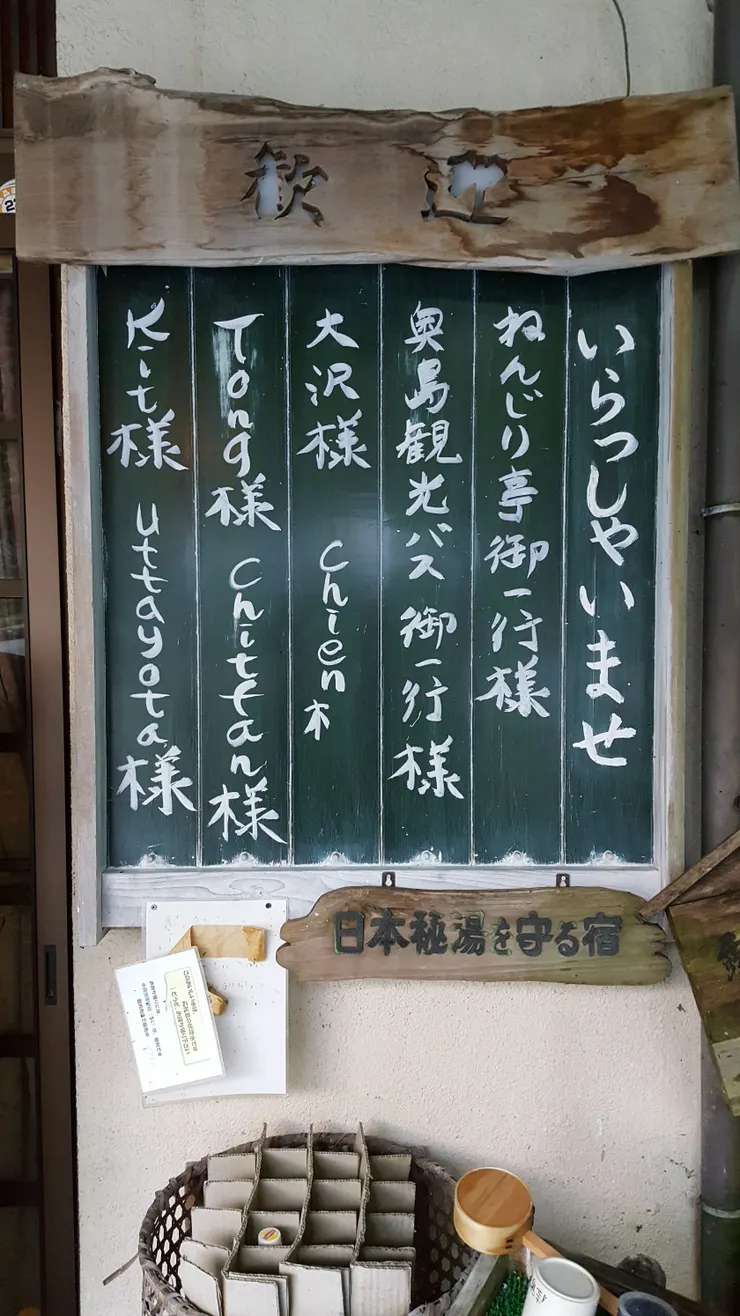 歓迎
いらっしゃいませ
ねんじり亭御一行様
奥島観光バス御一行様
大沢様 Chien木
Tong様 Chitfan様
Kit様 Uttayota様
日本秘湯を守る宿